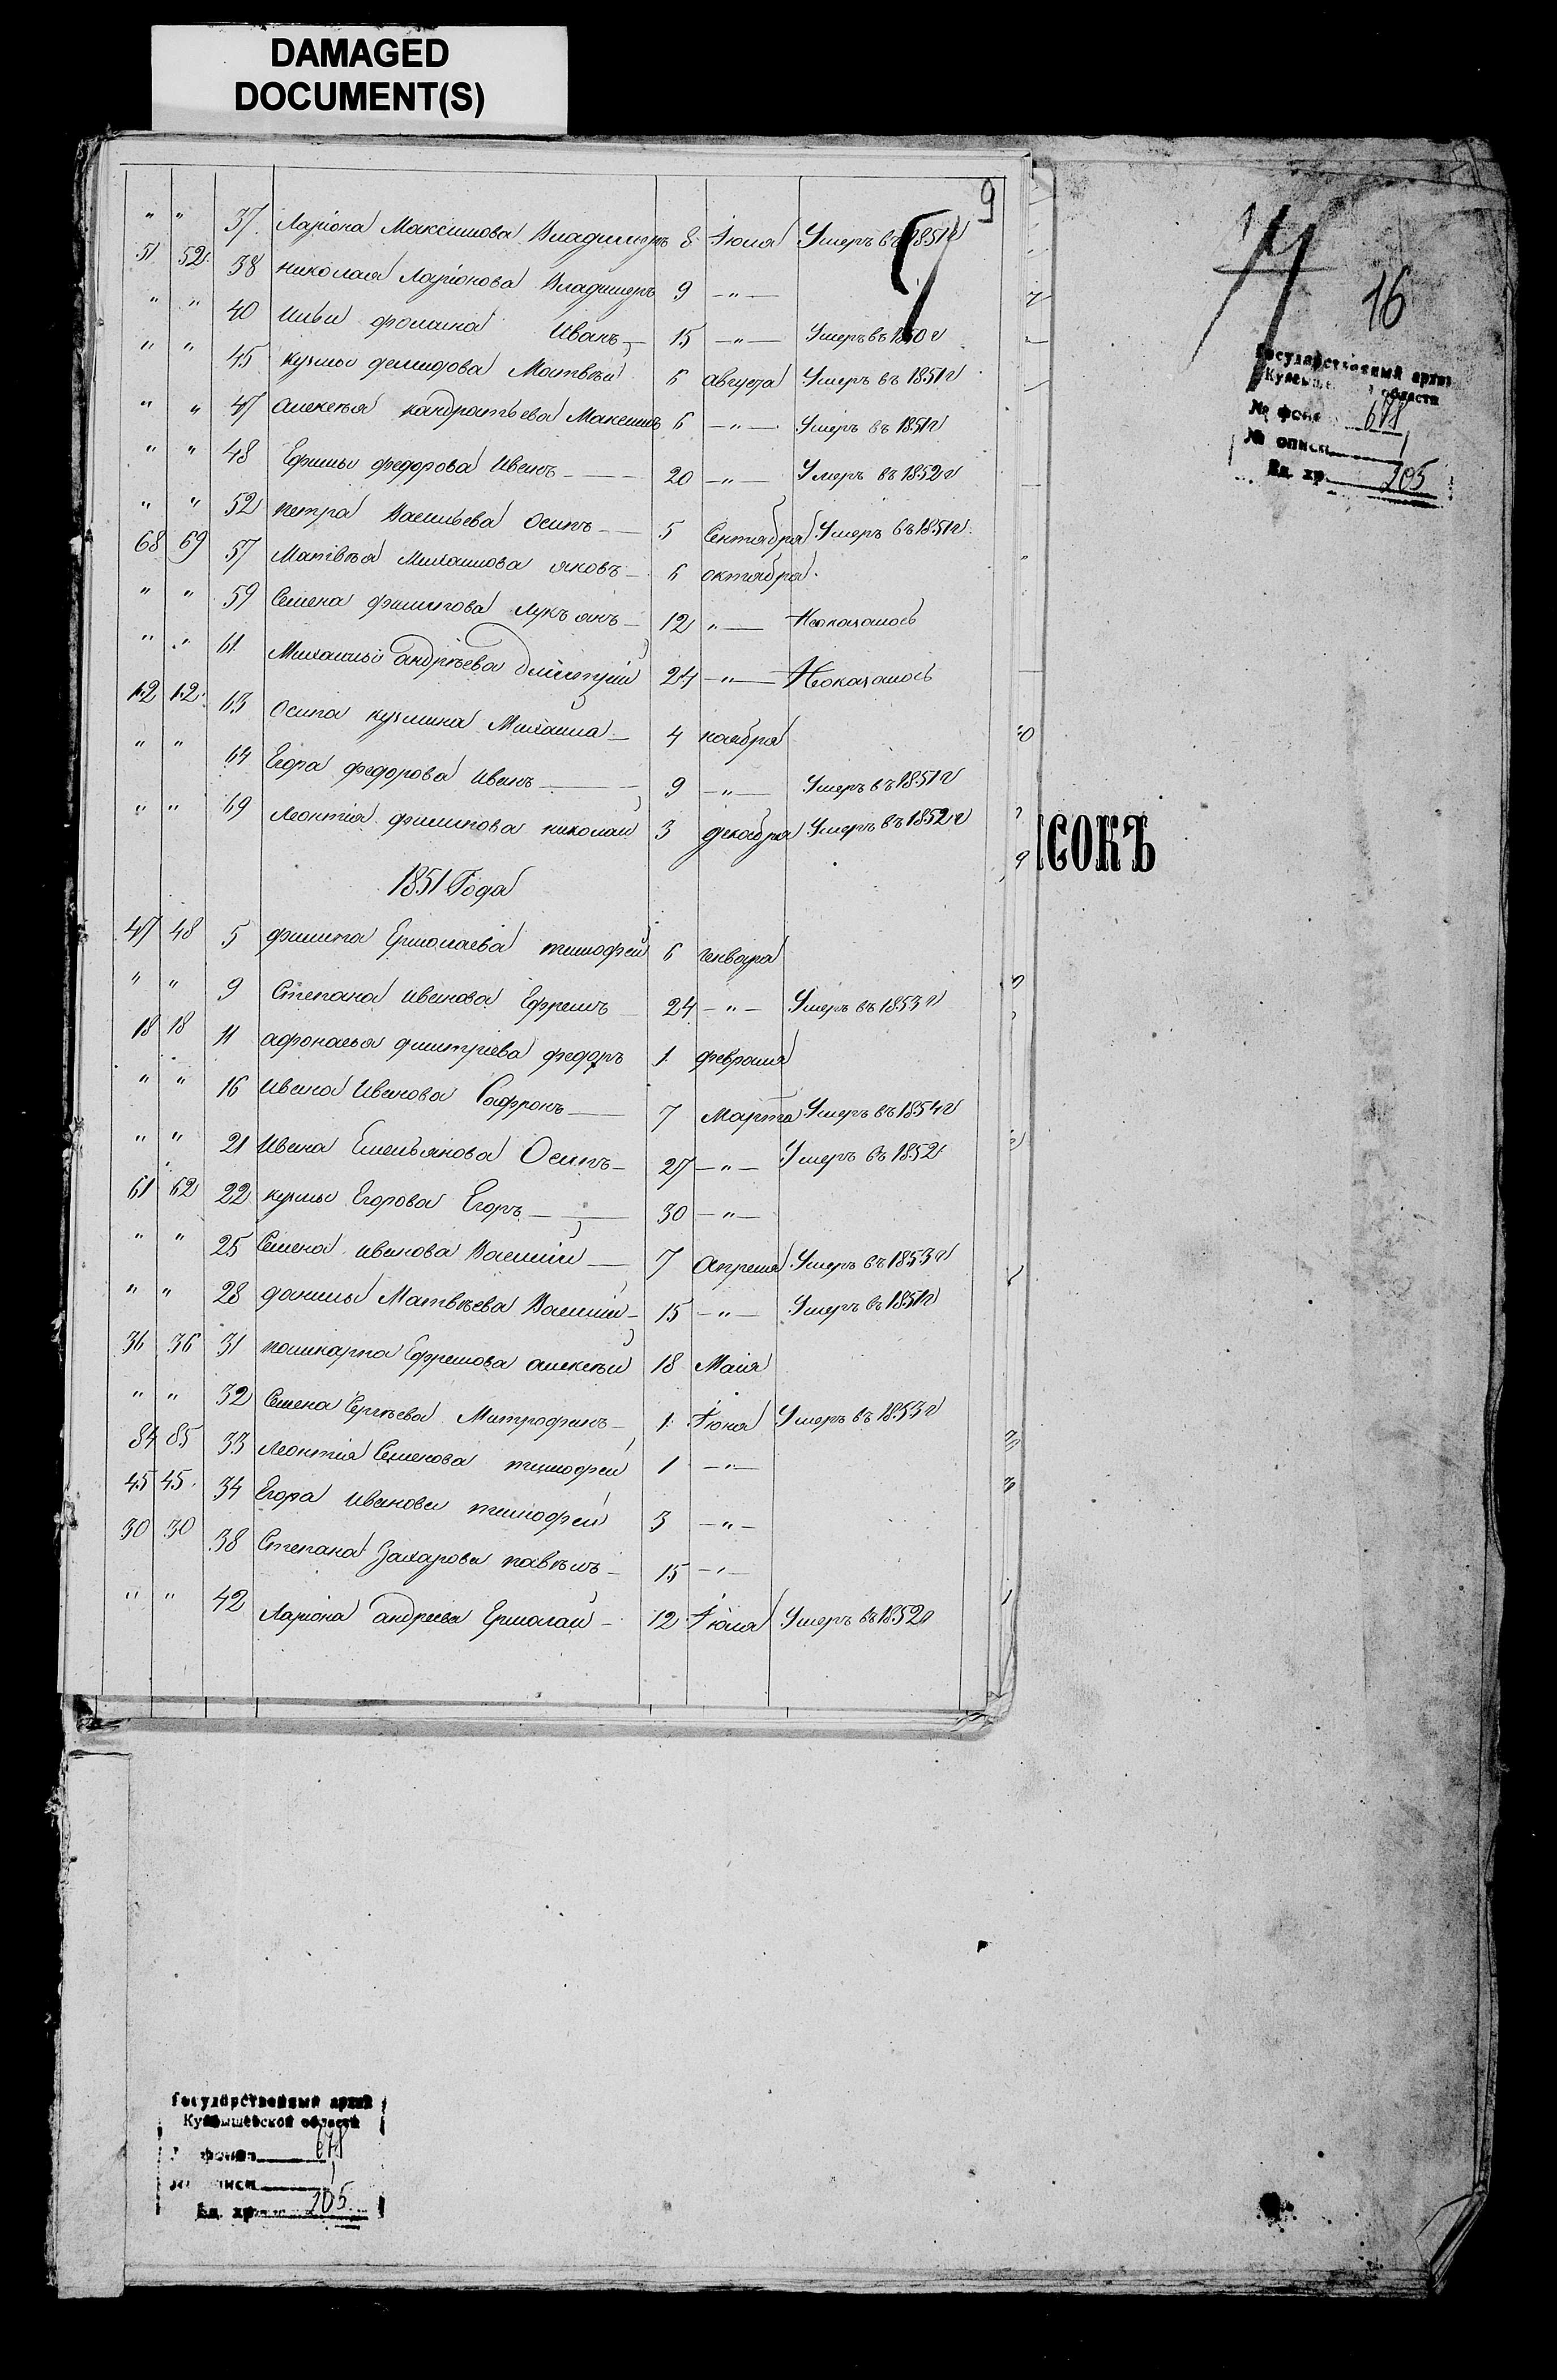 DAMAGED
DOCUMENT(S)
9
" " 37. Ларіона Максимова Владимеръ 8 Іюля Умеръ въ 1851 г
51 52. 38 николая Ларіонова Владимеръ 9 — " —
" " 40 Ильи фомина Иванъ — 15 — " — Умеръ въ 1850 г
" " 45 кузьмы демидова Матвѣй 6 августа Умеръ въ 1851 г
" " 47 алексѣя кандратьева Максимъ 6 — " — Умеръ въ 1851 г
" " 48 Ефима федорова Иванъ — 20 — " — Умеръ въ 1852 г
" " 52 петра Васильева Осипъ — 5 Сентября Умеръ въ 1851 г.
68 69 57 Матвѣя Михаилова яковъ — 6 октября.
" " 59 Семена филипова Лукъянъ — 12 " — Неоказалось
" " 61. Михаилы андрѣева дмитрій 24 — " — Неоказалось
12 12. 63 Осипа кузмина Михаила — 4 ноября
" " 64 Егора федорова Иванъ — 9 — " — Умеръ въ 1851 г
" " 69 Леонтія филипова николай 3 декабря Умеръ въ 1852 г
1851 Года
47 48 5 филипа Ермолаева тимофей 6 генваря
" " 9 Степана иванова Ефремъ 24 — " — Умеръ въ 1853 г
18 18 11 афонасья дмитріева федоръ 1. февраля
" " 16 Ивана Иванова Софронъ — 7 Марта Умеръ въ 1854 г
" " 21 Ивана Емельянова Осипъ — 27 — " — Умеръ въ 1852
61 62 22 кузьмы Егорова Егоръ — 30 — " —
" " 25 Семена иванова Василій — 7 Апреля Умеръ въ 1853 г
" " 28 данилы Матвѣева Василій — 15 — " — Умеръ въ 1851 г
36 36 31 поликарпа Ефремова алексѣй 18 Маія
" " 32 Семена Сергѣева Митрофанъ — 1. Іюня Умеръ въ 1853 г
84 85 33 Леонтія Семенова тимофей 1 — " —
45 45. 34 Егора Иванова тимофей 3 — " —
30 30 38 Степана Захарова павѣлъ — 15 — " —
" " 42 Ларіона андреева Ермалай — 12 Іюля Умеръ въ 1852 г
16
Государственный архив
области
№ фон 678
№ описи 1
Ед. хр. 205
СОКЪ
Государственный архив
Куйбышевской области
фонда 678
описи 1
Ед. хр. 205.